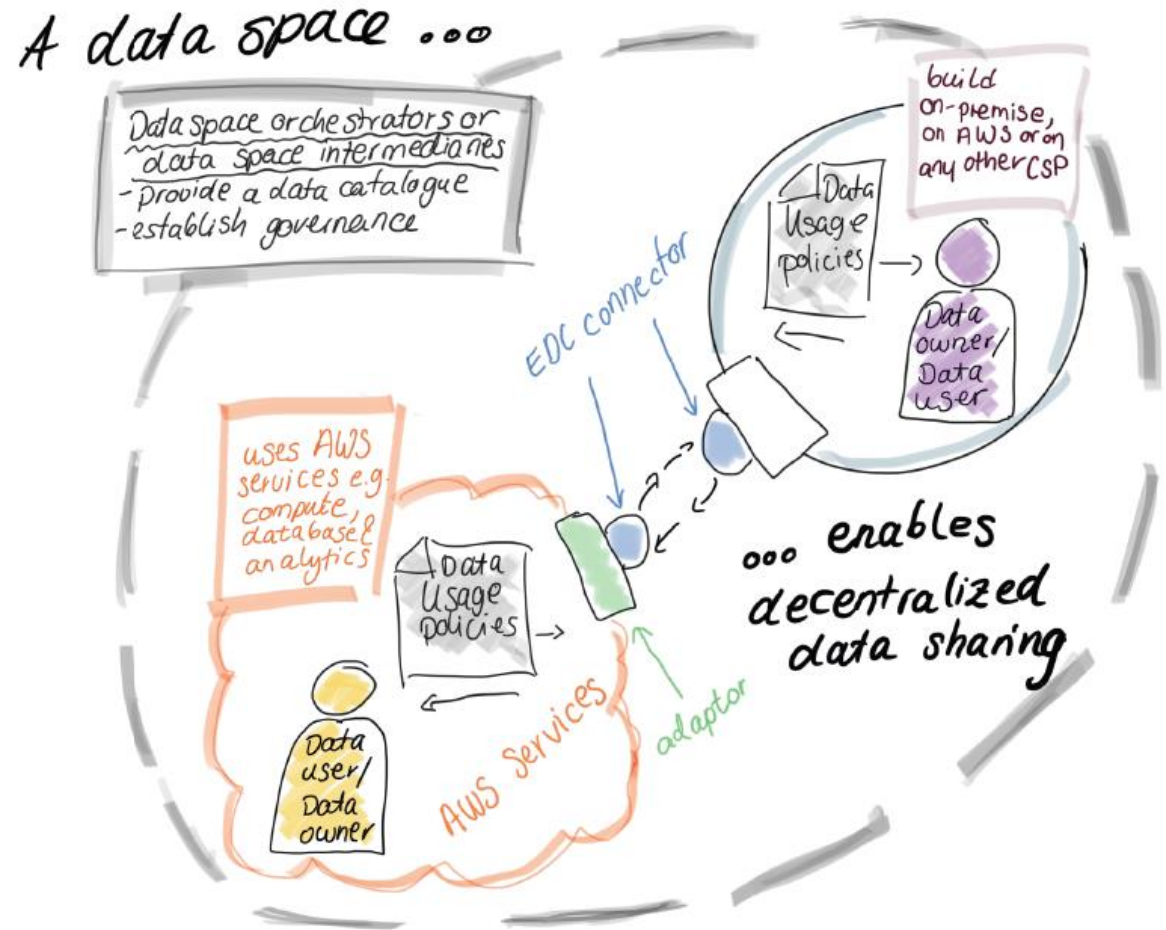 A data space ...
Data space orchestrators or
data space intermediaries
- Provide a data catalogue
- establish governance
build
on-premise,
on AWS or on
any other CSP
Data
Usage
policies
Data
owner/
Data
user
EDC connector
uses AWS
services e.g.
compute,
database &
analytics
Data
Usage
policies
... enables
decentralized
data sharing
adaptor
AWS Services
Data
user/
Data
owner